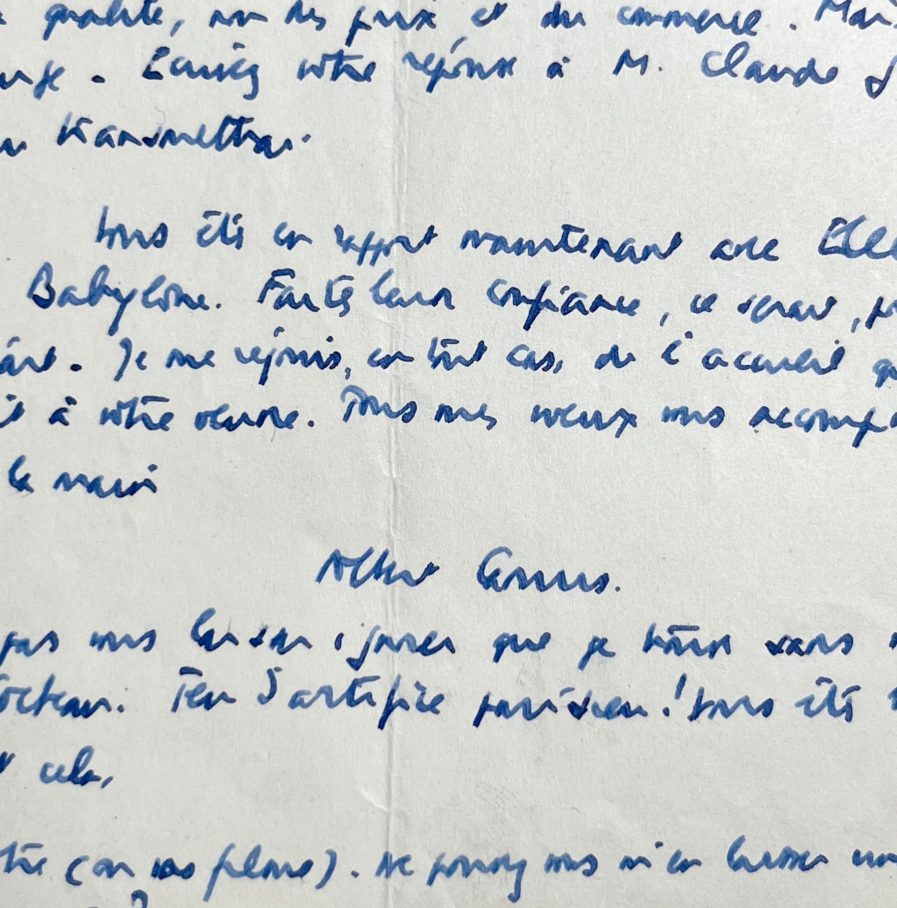 qualité, ou des prix et du commerce. Mais
Écrivez votre réponse à M. Claude
transmettra.
Vous êtes en rapport maintenant avec
Babylone. Faites leur confiance, ce serait,
Je me réjouis, en tout cas, de l'accueil
à votre oeuvre. Tous mes voeux vous accomp
la main
Albert Camus.
pas vous laisser ignorer que je trouve sans
Cocteau. Feu d'artifice parisien! Vous êtes
cela,
(on vos plans). Ne pouvez vous m'en laisser un